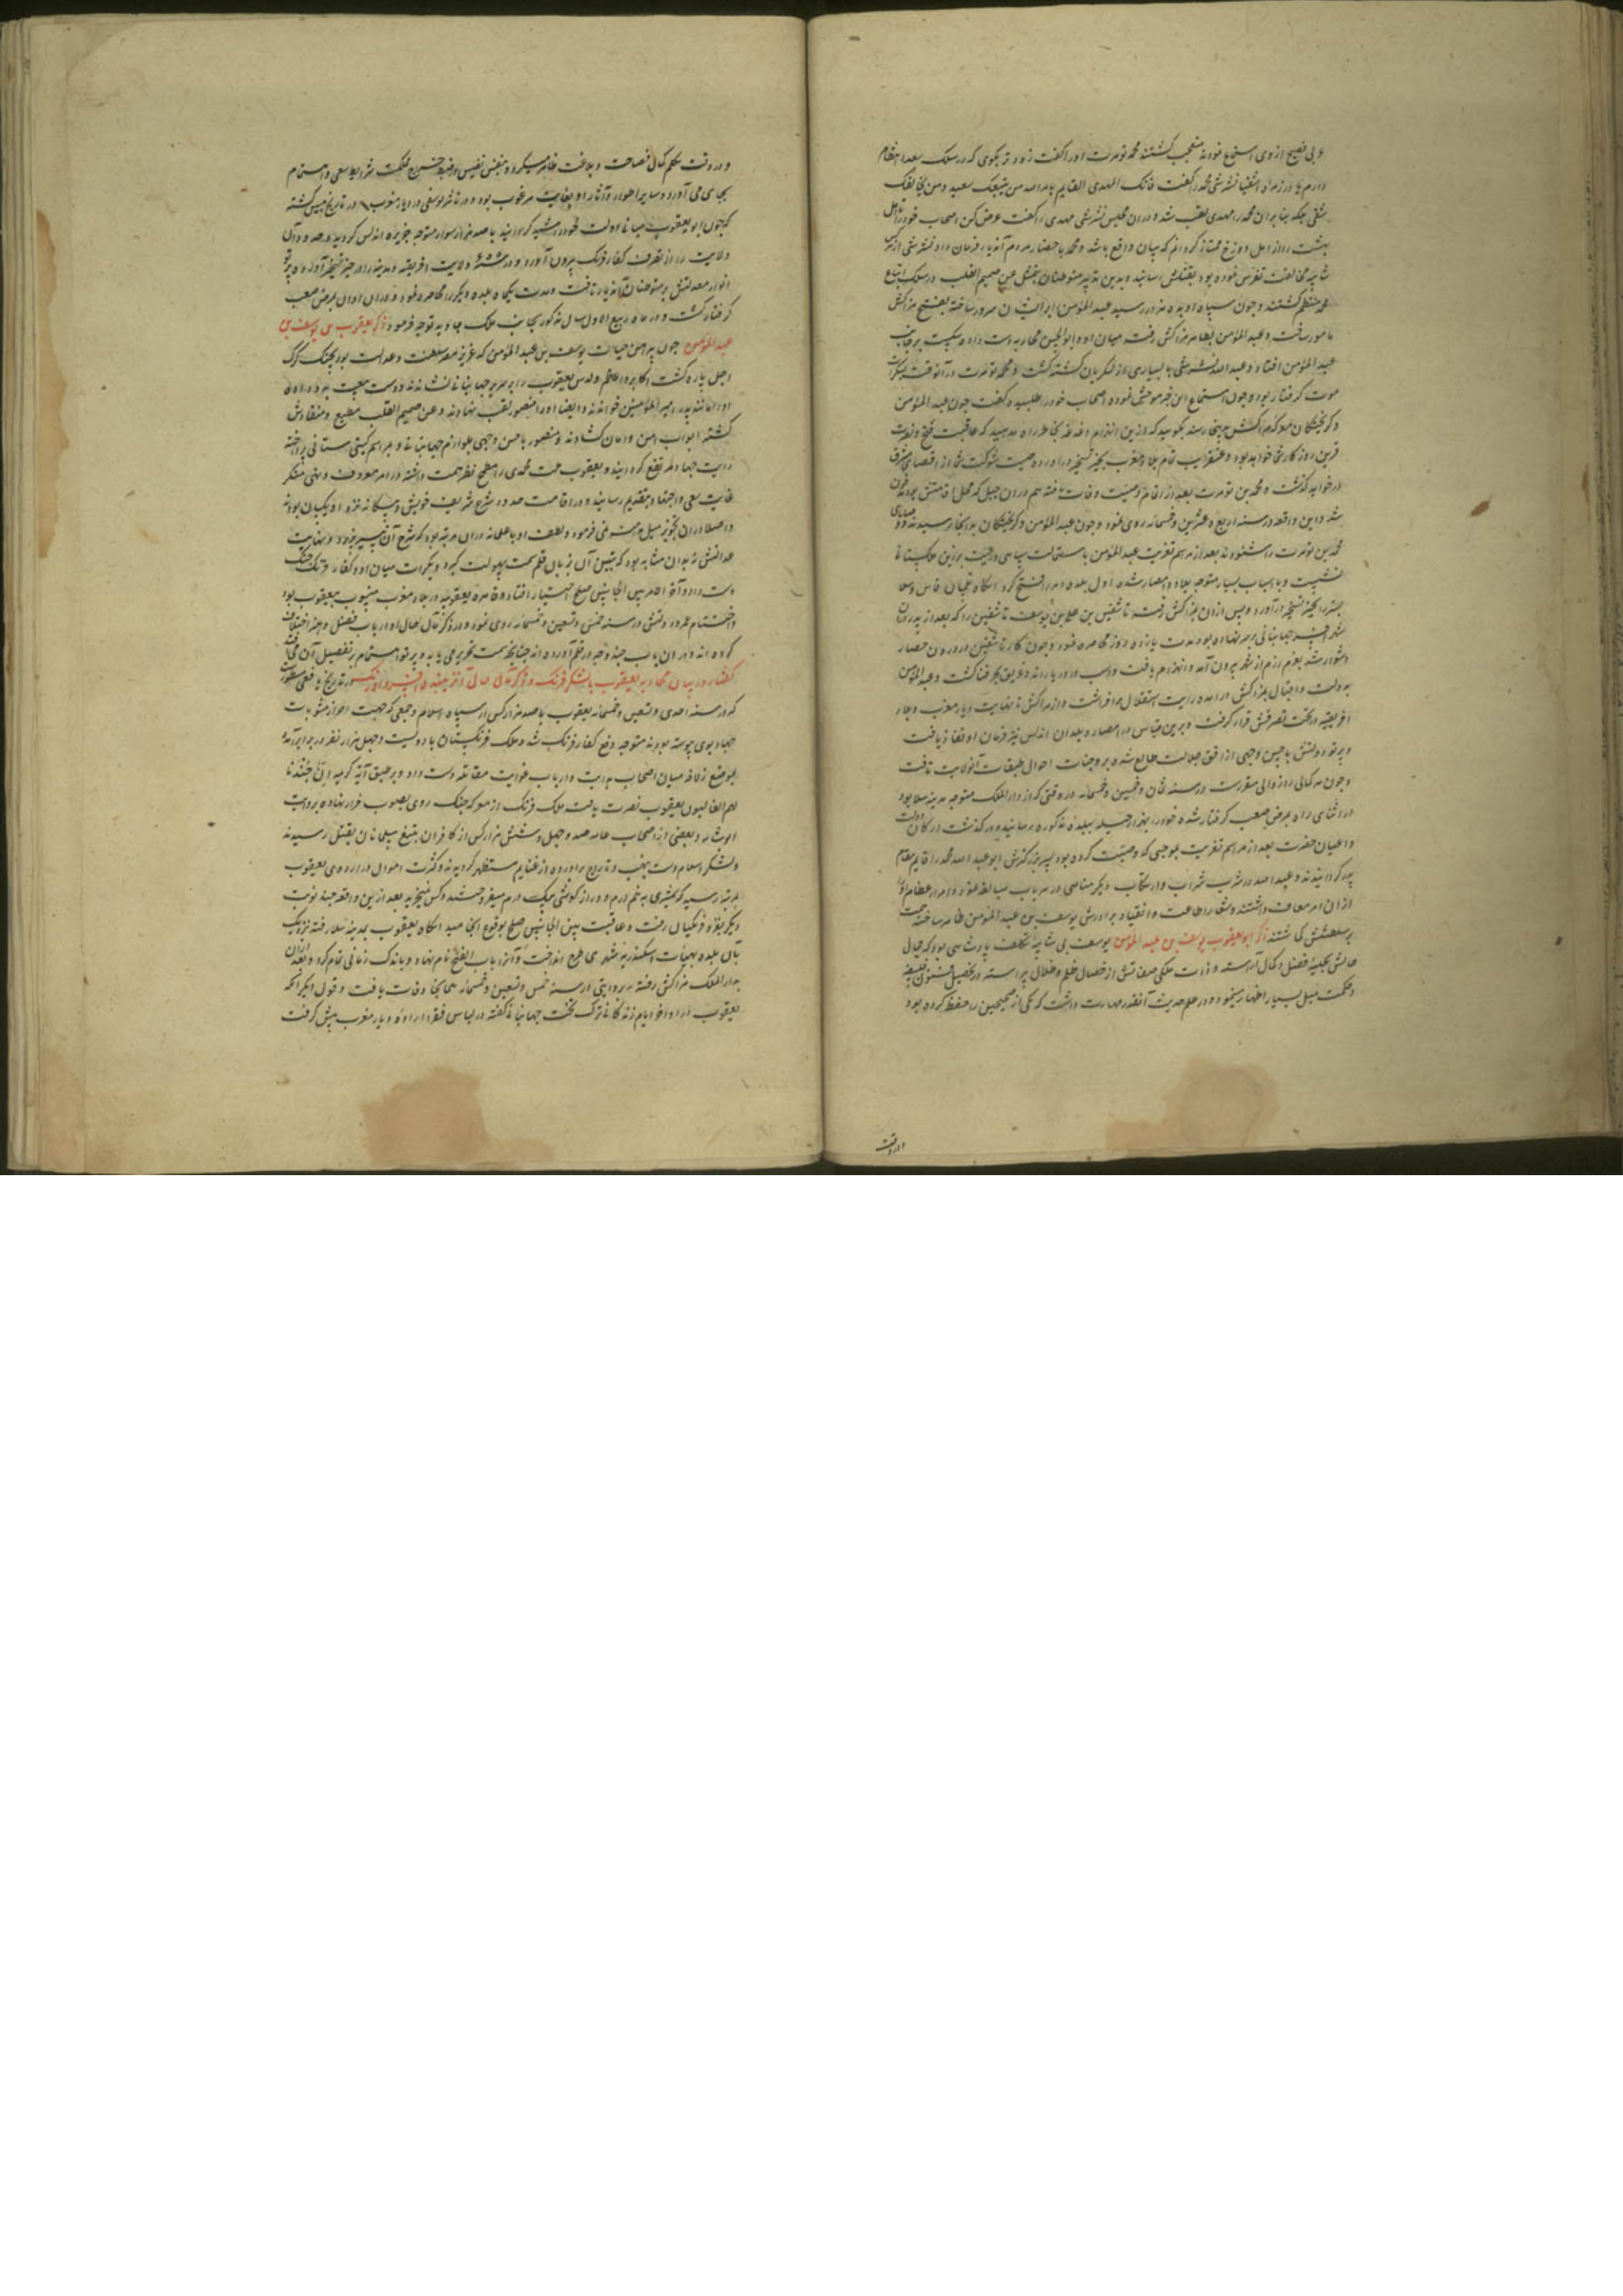 عربی فصیح ازوی استماع نمودند متعجب کشتند محمد تومرت اورا کفت زود تر بکوی که در سلک سعدا انتظام
دارم یا در زمره اشقیا ونشریشی محمد را کفت فانک المهدی القایم بامر الله من یتبعک سعید ومن یخالفک
شقی بنابران محمد را مهدی لقب شد ودران مجلس ونشریشی مهدی را کفت عرض کن اصحاب خود را تا اهل
بهشت را از اهل دوزخ ممتاز کردانم که بیان واقع باشد ومحمد باحضار مردم آندیار فرمان داد ونشریشی از هرکه
شایبه مخالفت تفرس نموده بود بقتلش رسانید وبدین تدبیر متوطنان عن صمیم القلب در سلک اتباع
محمد منتظم کشتند وچون سپاه او بده هزار رسید عبد المؤمن را بر ایشان سرور ساخته بفتح مراکش
مامور ساخت وعبد المؤمن بظاهر مراکش رفت میان او وابو الحسن محاربه دست داده شکست بر جانب
عبد المؤمن افتاد وعبد الله ونشریشی با بسیاری از لشکریان کشته کشت ومحمد تومرت درآنوقت بسکرات
موت کرفتار بود وچون استماع این خبر موحش نموده اصحاب خود را طلبیده کفت چون عبد المؤمن
وکریختکان معرکه مراکش اینجا رسند بکویید که ازین انهزام دغدغه بخاطر راه مدهید که عاقبت فتح ونصرت
قرین روزکار شما خواهد بود وعنقریب تمام بلاد مغرب بحیز تسخیر درآورده صیت شوکت شما از اقصای شرق
درخواهد کذشت ومحمد بن تومرت بعد از اتمام وصیت وفات یافته هم دران جبل که محل اقامتش بود مدفون
شد واین واقعه در سنه اربع وعشرین وخمسمائه روی نمود وچون عبد المؤمن وکریختکان بدانجا رسیدند ووصایای
محمد بن تومرت را شنودند بعد از مراسم تعزیت عبد المؤمن باستمالت سپاهی ورعیت بر زین ملک ستانی
نشست وبا اسباب بسیار متوجه بلاد وامصار شده اول بلده را فتح کرد انکاه تلمسان فاس وسلا
بستر را بحیز تسخیر درآورد وپس ازان بمراکش رفت تاشفین بن علی بن یوسف تاشفین را که بعد از پدر دران
شهر افسر جهانبانی بر سر نهاده بود مدت یازده روز محاصره نمود وچون کار تاشفین در درون حصار
دشوار شد بعزم رزم از شهر بیرون آمد وانهزام یافت واسب در دریا راند وغریق بحر فنا کشت وعبد المؤمن
بدولت واقبال بمراکش درآمده رایت استقلال برافراشت واز مراکش تا نهایت دیار مغرب وبلاد
افریقیه در تحت تصرفش قرار کرفت وبرین قیاس در امصار وبلدان اندلس نیز فرمان او نفاذ یافت
وپرتو دولتش باحسن وجهی از افق جلالت طالع شده بر وجنات احوال طبقات آنولایت تافت
وچون هر کمالی را زوالی مقررست در سنه ثمان وخمسین وخمسمائه در وقتی که از دار الملک متوجه مدینه سلا بود
در اثنای راه بمرض صعب کرفتار شده خود را بهزار حیله ببلده مذکوره رسانید ودرکذشت ارکان دولت
واعیان حضرت بعد از مراسم تعزیت بموجبی که وصیت کرده بود پسر بزرکترش ابو عبد الله محمد را قایم مقام
پدر کردانیدند وعبد الله در شرب شراب وارتکاب دیکر مناهی در هر باب مبالغه نمود وامرا عظام او را
ازان امر معاف داشتند وشعار اطاعت وانقیاد برادرش یوسف بن عبد المؤمن ظاهر ساخته همت
بر سلطنتش کماشتند ذکر ابو یعقوب یوسف بن عبد المؤمن یوسف بی شایبه تکلف پادشاهی بود که جمال
حالش بحلیه فضل وکمال آراسته وذات ملکی صفاتش از خصال ظلم وضلال پیراسته در تحصیل فنون فلسفه
وحکمت میل بسیار اظهار مینمود ودر علم حدیث آنقدر مهارت داشت که یکی از صحیحین را حفظ کرده بود
ودر وقت
ودر وقت تکلم کمال فصاحت وبلاغت ظاهر میکرد وبنفس نفیس در ضبط مملکت شرایط سعی واهتمام
بجای می آورد وسایر اطوار وآثار او بغایت مرغوب بود ودر تاریخ یافعی در دیار مغرب در تاریخ کشته
که چون ابو یعقوب مبانی دولت خود را مشید کردانید با صد هزار سوار متوجه جزیره اندلس کردید ودر صدد آن
ولایت را از تصرف کفار فرنک بیرون آورد ودر سنه ولایت افریقیه ومهدیه را در حیز تسخیر آورده پرتو
انوار معدلتش بر متوطنان آندیار تافت ومدت یکماه بلده دیکر را محاصره نمود ودران اوان بمرض صعب
کرفتار کشت ودر ماه ربیع الاول سال مذکور بجانب ملک جاوید توجه فرمود ذکر یعقوب بن یوسف بن
عبد المؤمن چون پیراهن حیات یوسف بن عبد المؤمن که عزیز مصر سلطنت وعدالت بود بچنک کرک
اجل پاره کشت اکابر واعاظم ولدش یعقوب را بر سریر جهانبانی نشاندند ودست بیعت بدو داده
اورا مانند پدر امیر المؤمنین خواندند وایضا اورا منصور لقب نهادند وعن صمیم القلب مطیع ومنقادش
کشته ابواب امن وامان کشادند ومنصور باحسن وجهی بلوازم جهانبانی ومراسم کیتی ستانی پرداخته
رایت جهاد مرتفع کردانید ویعقوب ملت محمدی را مطمح نظر همت داشته در امر معروف ونهی منکر
غایت سعی واجتهاد بتقدیم رسانید ودر اقامت حدود شرع شریف خویش وبیکانه نزد او یکسان بودند
واصلا دران تجویز میل ومداهنه نمی فرمود ولطف او با علما دران مرتبه بود که شرح آن میسر نبود ونهایت
عدالتش نه بدان مثابه بود که تبیین آن بزبان قلم سمت سهولت کیرد وبکرات میان او وکفار فرنک جنک
دست داد وآخر الامر بین الجانبین صلح اختیار افتاد وقاهره یعقوبیه در بلاد مغرب منسوب بیعقوب بود
واختتام عمر ودولتش در سنه خمس وتسعین وخمسمائه روی نمود ودر ذکر مآل حال او ارباب فضل وهنر اختلاف
کرده اند ودر ان باب چند وجه در قلم آورده اند چنانچه سمت تحریر می یابد وپرتو اهتمام بر تفصیل آن می تابد
کفتار در بیان محاربه یعقوب با لشکر فرنک وذکر مآل حال آن زیبنده افسر واورنک در تاریخ یافعی مسطورست
که در سنه احدی وتسعین وخمسمائه یعقوب با صد هزار کس از سپاه اسلام وجمعی که جهت احراز مثوبات
جهاد بوی پیوسته بودند متوجه دفع کفار فرنک شد وملک فرنکستان با دویست وچهل هزار نفر در برابر آمده
بموضع زلاقه میان اصحاب هدایت وارباب غوایت مقاتله دست داد وبر طبق آیه کریمه ان جندنا
لهم الغالبون یعقوب نصرت یافت ملک فرنک از معرکه جنک روی بصوب فرار نهاده بروایت
ابو شامه وبعضی از اصحاب صد وچهل وشش هزار کس از کافران بتیغ مسلمانان بقتل رسیدند
ولشکر اسلام دست بنهب وتاراج برآورده از غنایم مستظهر کردیدند وکثرت اموال در اردوی یعقوب
بمرتبه رسید که شمشیری به نیم درم ودرازکوشی بیک درم میفروختند وکس نمیخرید بعد ازین واقعه چند نوبت
دیکر بغزو فرنکیان رفت وعاقبت بین الجانبین صلح بوقوع انجامید انکاه یعقوب بمدینه سلا رفته نزدیک
بآن بلده بهیئات اسکندریه شهری طرح انداخت وآنرا باب الفتح نام نهاد وباندک زمانی تمام کرده بعد ازان
بدار الملک مراکش رفته بروایتی در سنه خمس وتسعین وخمسمائه همانجا وفات یافت وقول دیکر آنکه
یعقوب در اواخر ایام زندکانی ترک تخت جهانبانی کفته در لباس فقرا راه دیار مغرب پیش کرفت